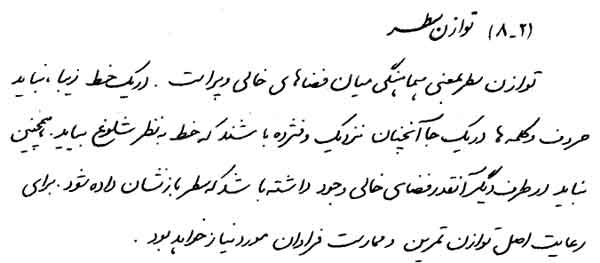 (۲-۸) توازن سطر
توازن سطر بمعنی هماهنگی میان فضاهای خالی و پر است. در یک خط زیبا، نباید
حروف و کلمه ها در یک جا آنچنان نزدیک و فشرده باشند که خط به نظر شلوغ بیاید. همچنین
نباید در طرف دیگر آنقدر فضای خالی وجود داشته باشد که سطر باز نشان داده شود. برای
رعایت اصل توازن تمرین و ممارست فراوان مورد نیاز خواهد بود.